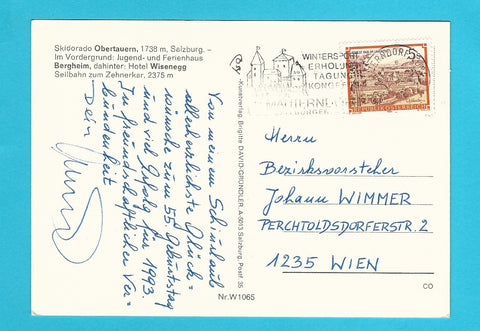 Skidorado Obertauern, 1738 m, Salzburg. –
Im Vordergrund: Jugend- und Ferienhaus
Bergheim, dahinter: Hotel Wisenegg
Seilbahn zum Zehnerkar, 2375 m
Von meinem Schiurlaub
allerherzlichste Glück=
wünsche zum 55. Geburtstag
und viel Erfolg für 1993.
In freundschaftlicher Ver=
bundenheit
Dein
Kunstverlag Brigitte DAVID-GRÜNDLER, A-5013 Salzburg, Postf. 35
Nr.W1065
WINTERSPORT
ERHOLUNG
TAGUNG
KONGRE
REPUBLIK ÖSTERREICH
Herrn
Bezirksvorsteher
Johann WIMMER
PERCHTOLDSDORFERSTR. 2
1235 WIEN
CO